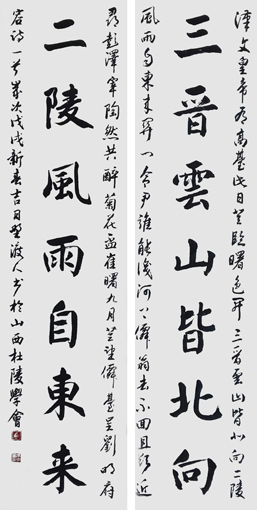 漢文皇帝有高臺此日登臨曙色開三晉雲山皆北向二陵
三晉雲山皆北向
風雨自東来關門令尹誰能識河上僊翁去不回且欲近
尋彭澤宰陶然共醉菊花盃崔曙九日登望僊臺呈劉明府
二陵風雨自東来
容诗一首歲次戊戌新春吉日野渡人书於山西杜陵學會